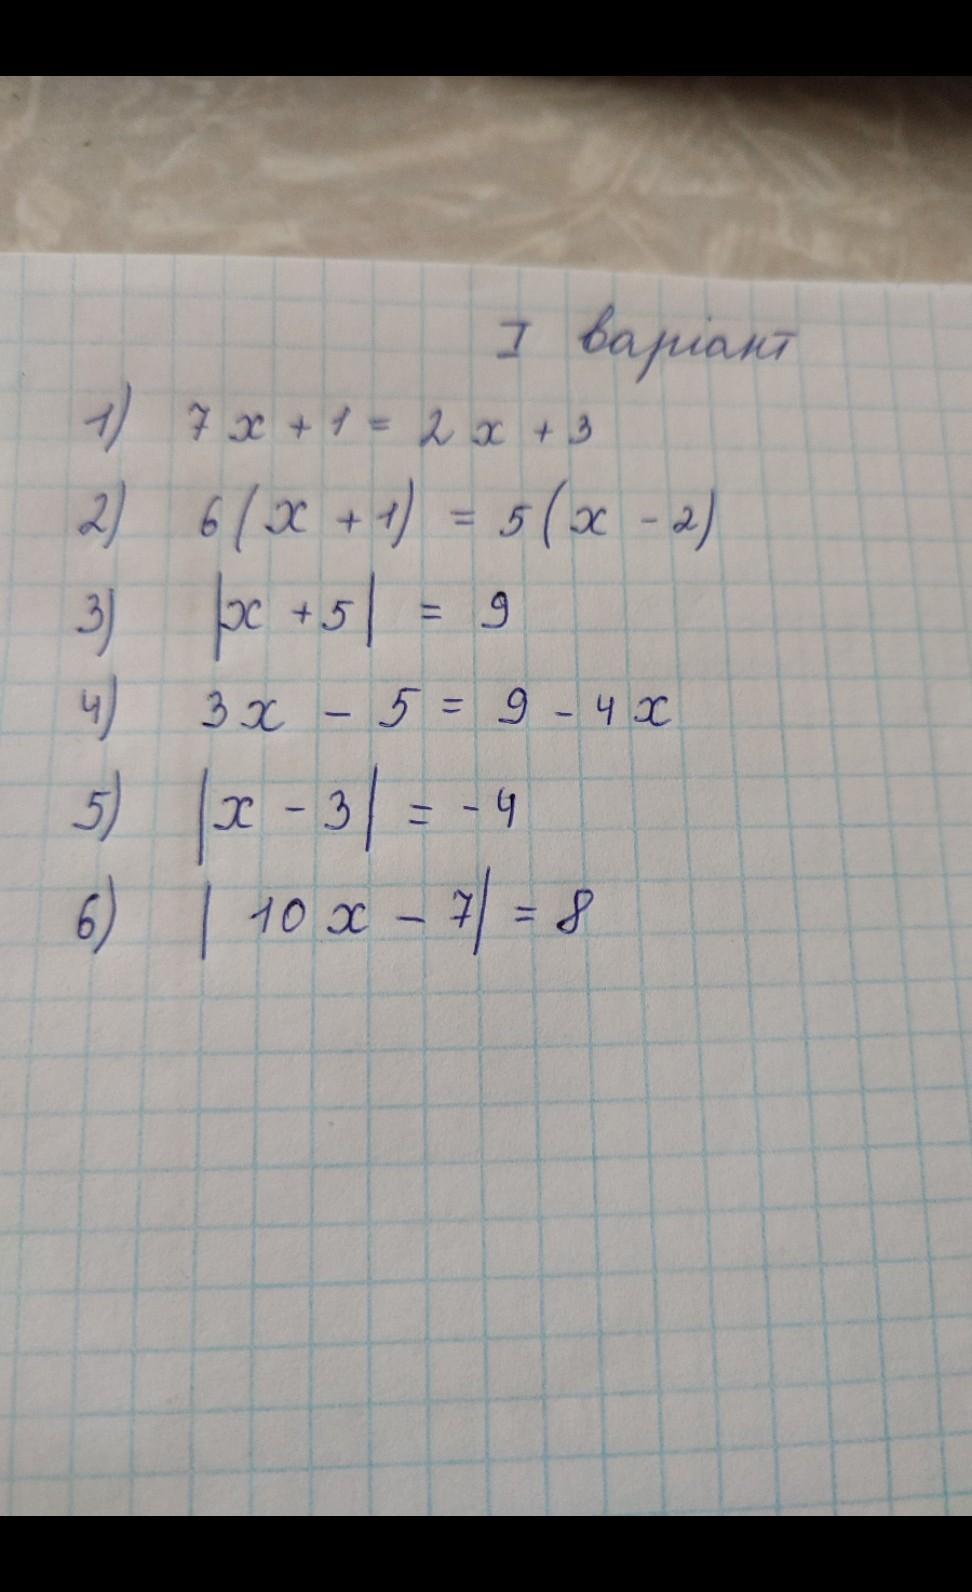 I варіант
1) 7x + 1 = 2x + 3
2) 6(x + 1) = 5(x - 2)
3) |x + 5| = 9
4) 3x - 5 = 9 - 4x
5) |x - 3| = -4
6) |10x - 7| = 8